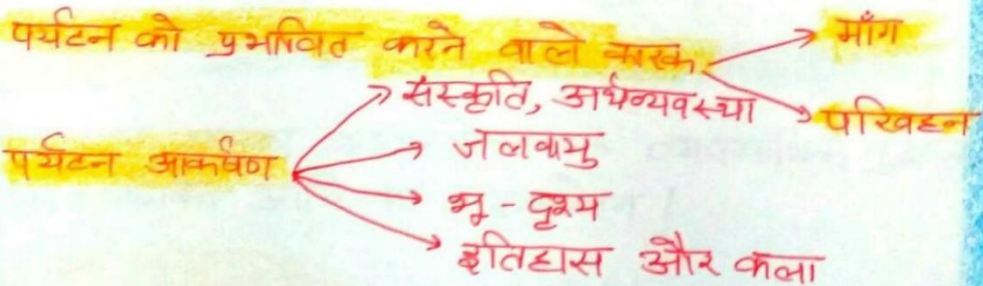 पर्यटन को प्रभावित करने वाले कारक
माँग
परिवहन
पर्यटन आकर्षण
संस्कृति, अर्थव्यवस्था
जलवायु
भू-दृश्य
इतिहास और कला